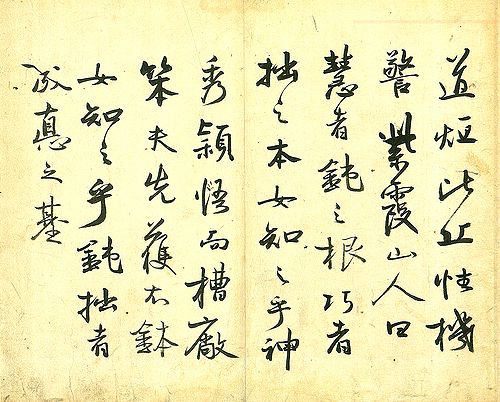 道烜比丘性機
警紫霞山人曰
慧者鈍之根巧者
拙之本女知之乎神
秀穎悟而槽廠
笨夫先獲衣鉢
女知之乎鈍拙者
成悳之基